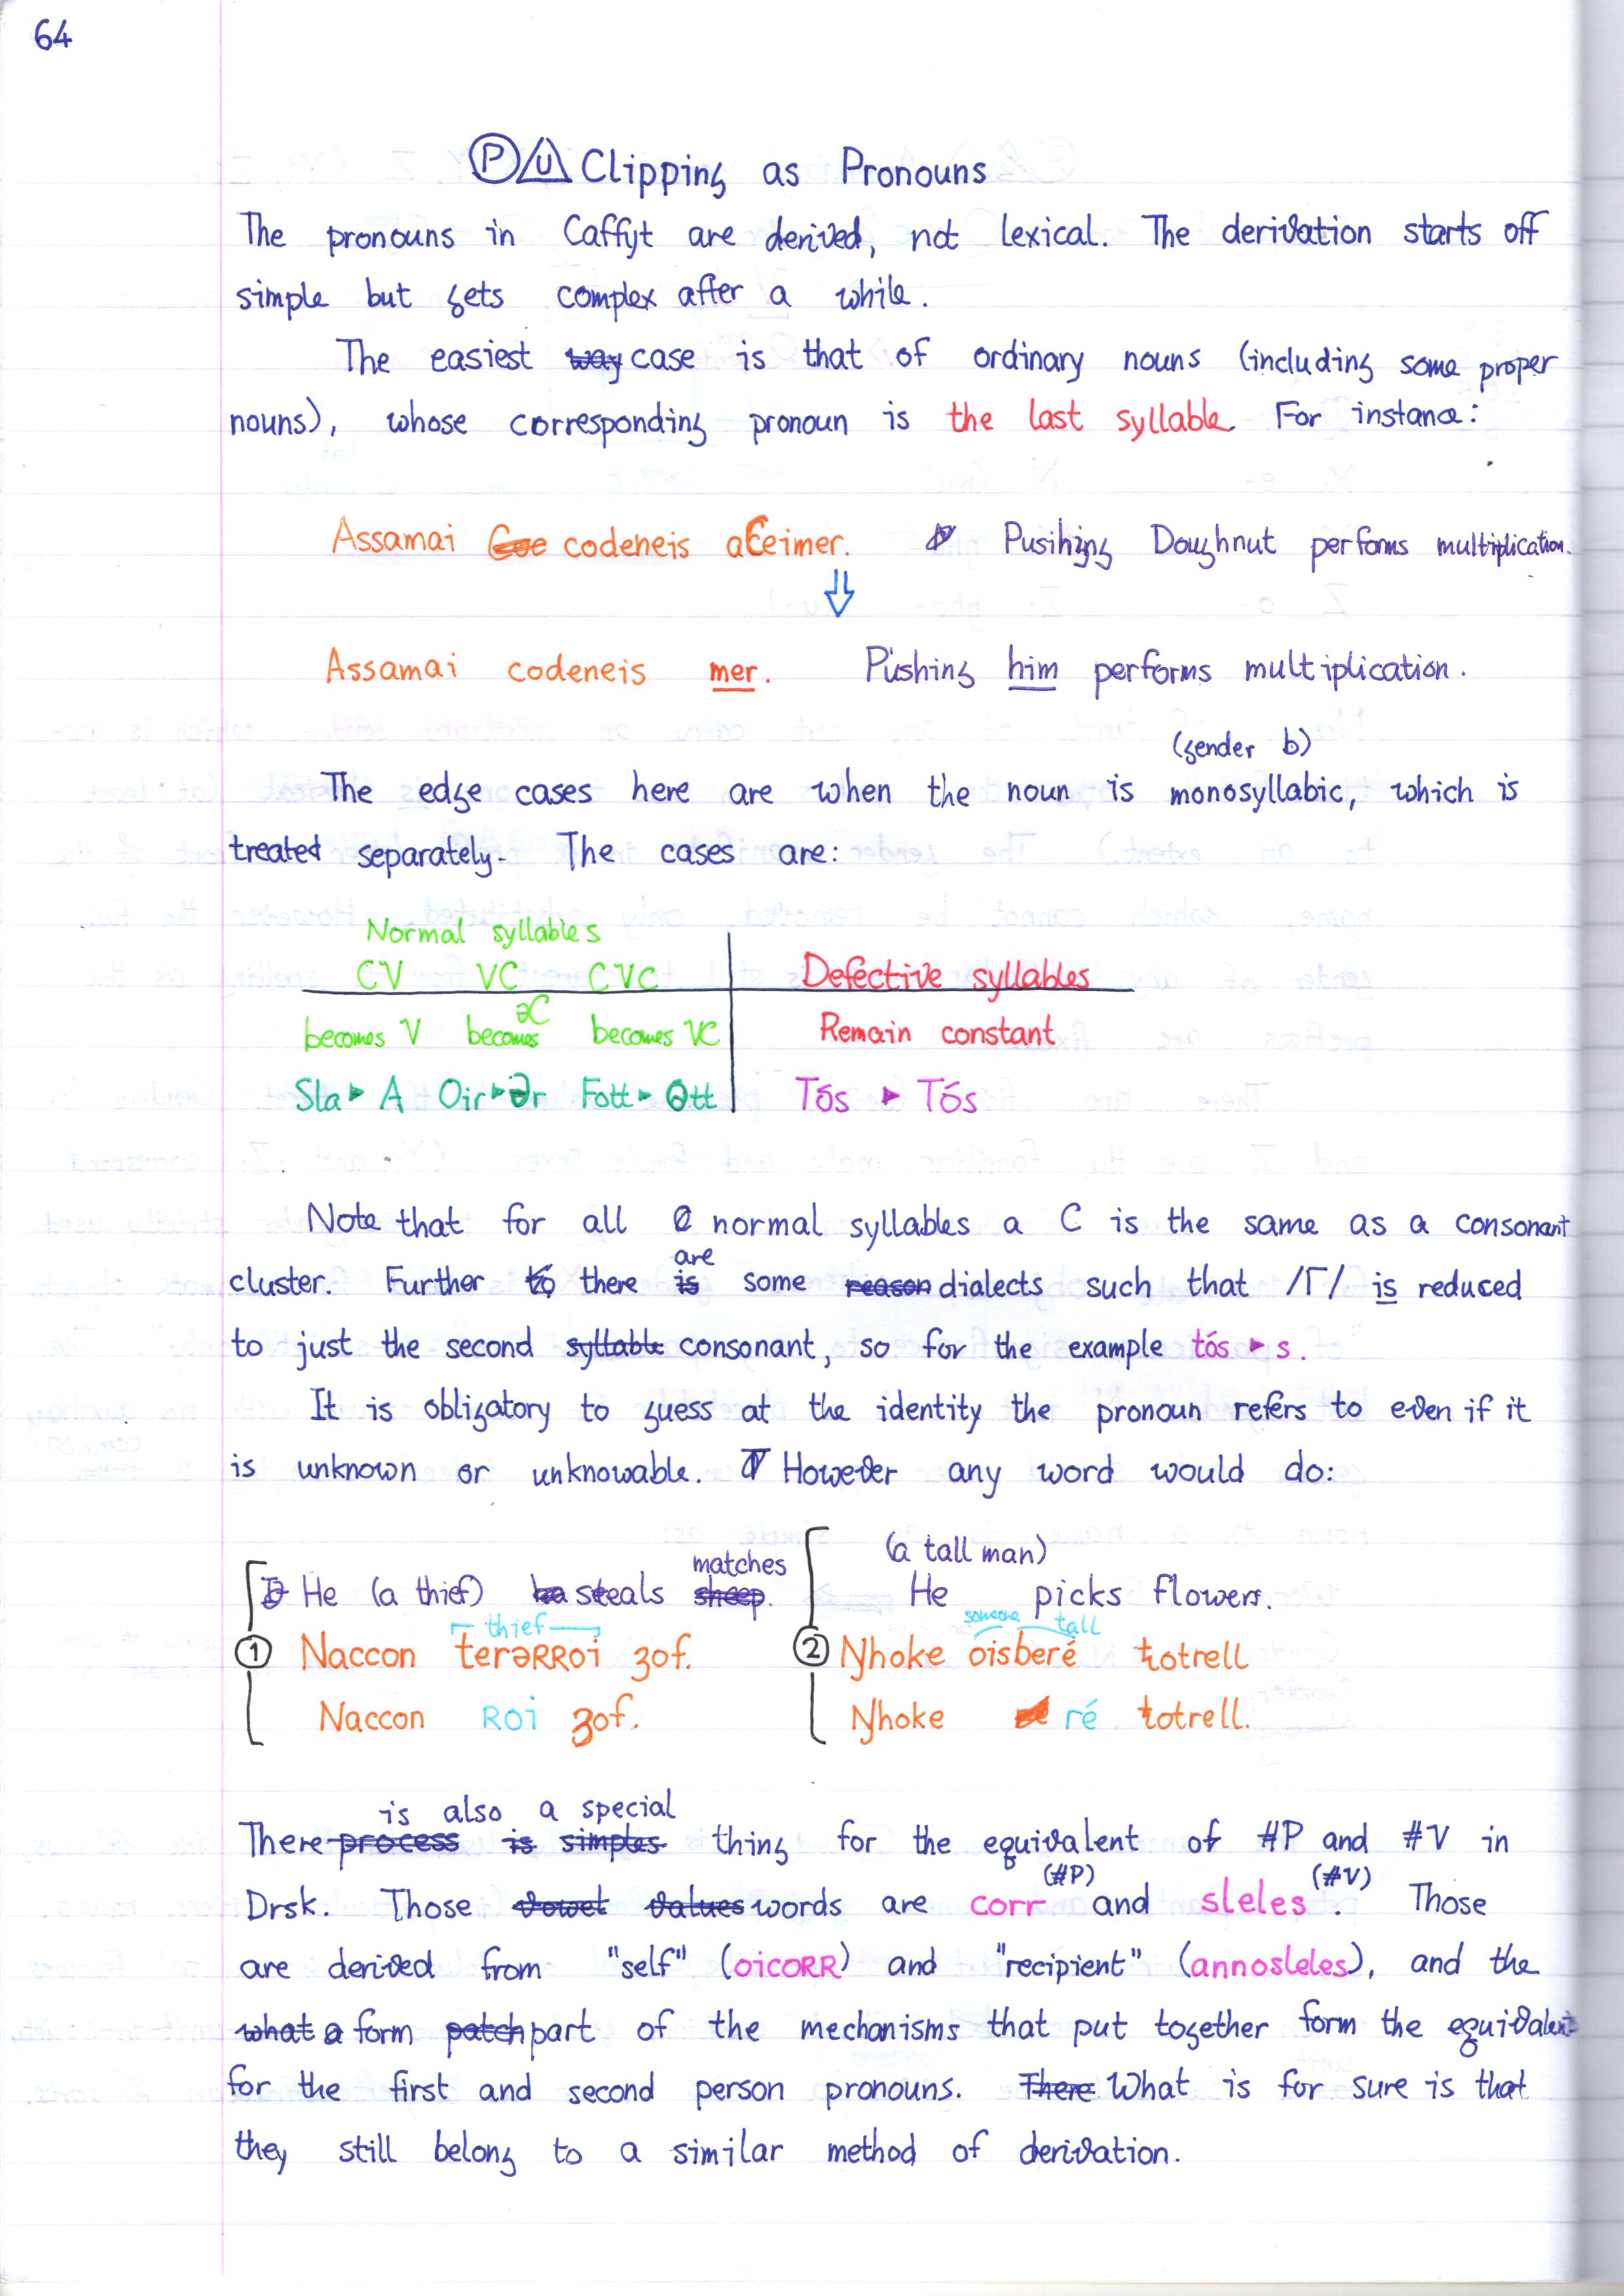 64
Ⓟ U Clipping as Pronouns
The pronouns in Caffyt are derived, not lexical. The derivation starts off
simple but gets complex after a while.
The easiest way case is that of ordinary nouns (including some proper
nouns), whose corresponding pronoun is the last syllable. For instance:
Assamai Coe codeneis aCeimer. Pusihing Doughnut performs multiplication.
⇓
Assamai codeneis mer. Pushing him performs multiplication.
(gender b)
The edge cases here are when the noun is monosyllabic, which is
treated separately. The cases are:
Normal syllables
CV VC CVC Defective syllables
becomes V becomes əC becomes VC Remain constant
Sla ▸ A Oir ▸ Ər Fott ▸ Ott Tós ▸ Tós
Note that for all normal syllables a C is the same as a consonant
cluster. Further to there is are some reason dialects such that /Γ/ is reduced
to just the second syllable consonant, so for the example tós ▸ s.
It is obligatory to guess at the identity the pronoun refers to even if it
is unknown or unknowable. However any word would do:
He (a thief) ha steals sheep matches.
thief
① Naccon terəRRoi ʒof.
Naccon Roi ʒof.
(a tall man)
He picks flowers.
someone tall
② Nhoke oisberé totrell
Nhoke ré totrell.
is also a special
There process is simples thing for the equivalent of #P and #V in
(#P) (#V)
Drsk. Those vowel values words are corr and sleles. Those
are derived from "self" (oicoRR) and "recipient" (annosleles), and the
what a form patch part of the mechanisms that put together form the equivalent
for the first and second person pronouns. There What is for sure is that
they still belong to a similar method of derivation.